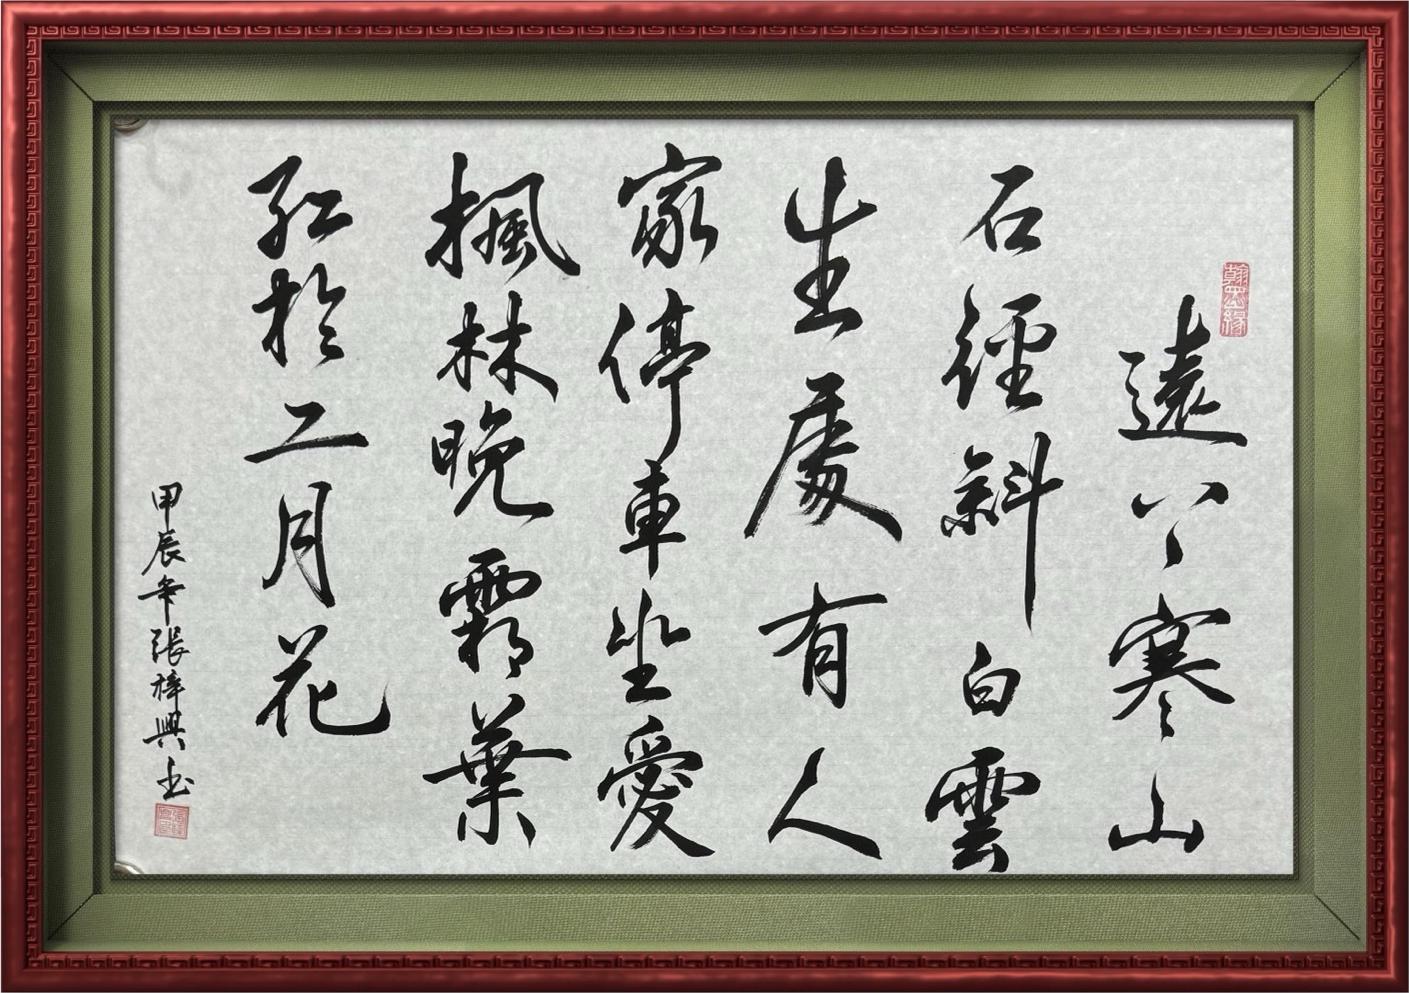 翰墨緣
遠上寒山
石徑斜白雲
生處有人
家停車坐愛
楓林晚霜葉
紅於二月花
甲辰年張梓興书